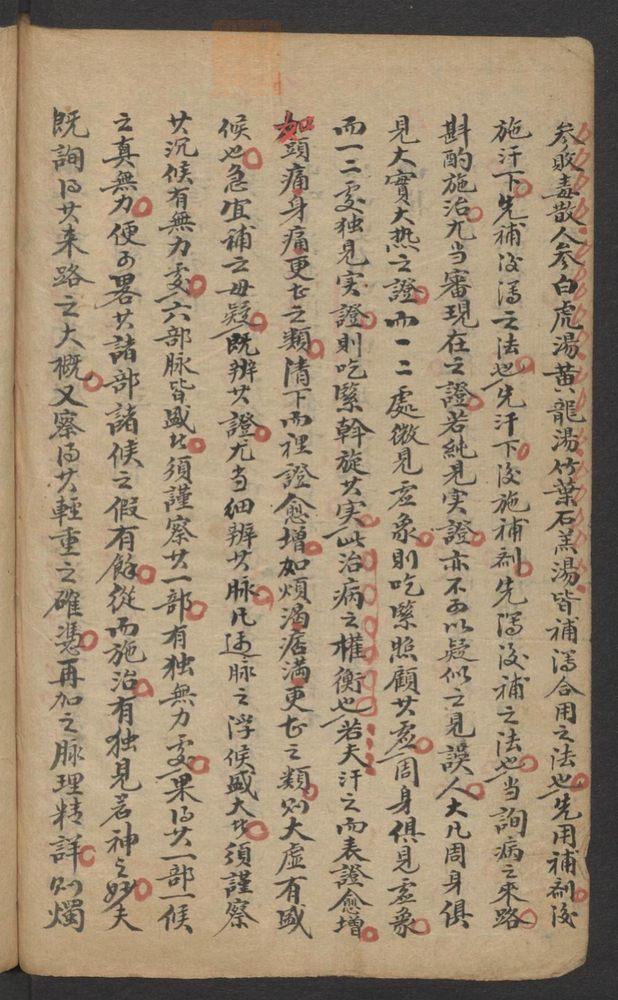 参敗毒散人参白虎湯黄龍湯竹葉石羔湯皆補瀉合用之法也先用補剤後
施汗下先補後瀉之法也先汗下後施補剤先瀉後補之法也当詢病之來路
斟酌施治尤当審現在之證若純見実證亦不可以疑似之見誤人大凡周身俱
見大實大热之證而一二處微見虚象則吃緊照顧其虚周身俱見虚象
而一二处独見実證則吃緊斡旋其実此治病之權衡也若夫汗之而表證愈增
如頭痛身痛更甚之類清下而裡證愈增如煩渴痞满更甚之類则大虚有盛
候也急宜補之毋疑既辨其證尤当细辨其脉凡遇脉之浮候盛大者須謹察
其沉候有無力处六部脉皆盛者須謹察其一部有独無力处果得其一部一候
之真無力便可畧其諸部諸候之假有餘從而施治有独見若神之妙夫
既詢得其来路之大概又察得其輕重之確憑再加之脉理精詳则燭